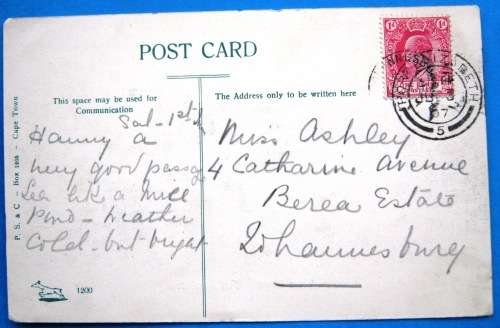 POST CARD
This space may be used for
Communication
The Address only to be written here
P. S. & C - Box 1208 - Cape Town
Sat - 1st
Having a
very good passage
Sea like a mill
Pond - Weather
Cold - but bright
Miss Ashley
4 Catharine Avenue
Berea Estate
Johannesburg
1200
1d 1d
ELIZABETH
07
5